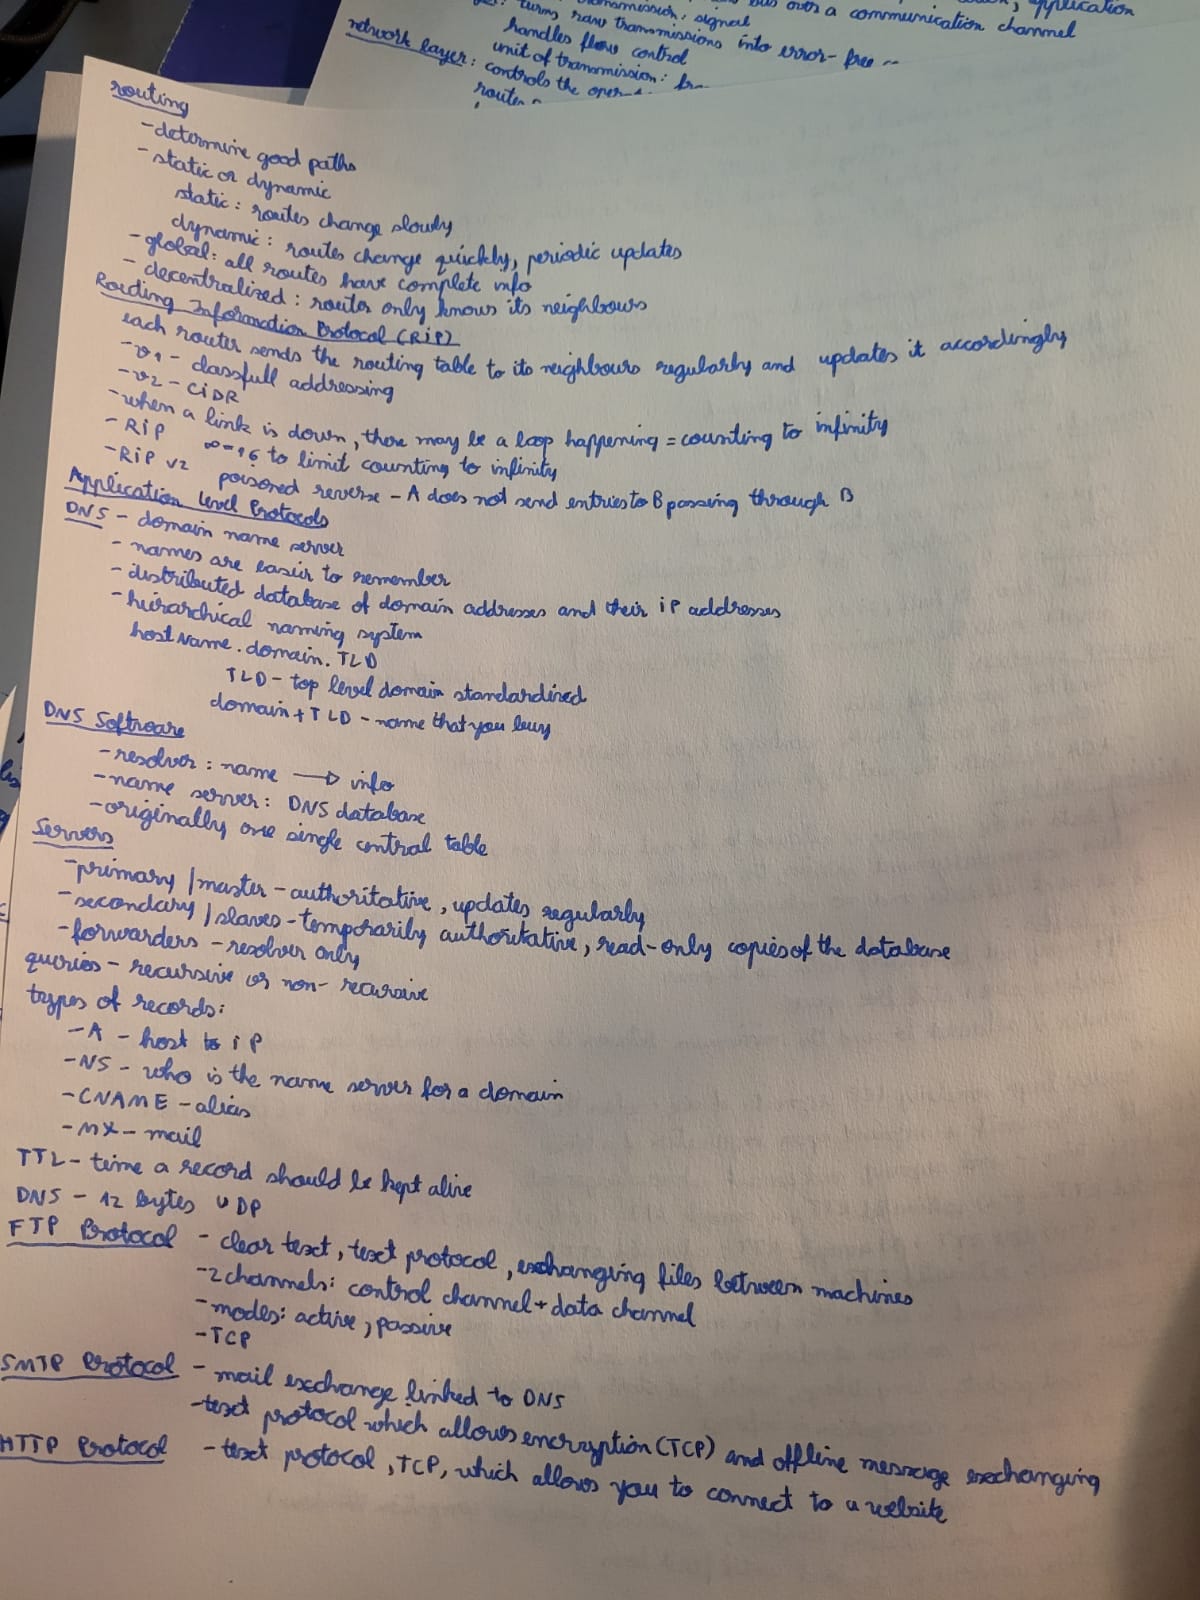 over a communication channel
turns raw transmissions into error-free
handles flow control
unit of transmission:
network layer: controls the
routing
-determine good paths
-static or dynamic
static: routes change slowly
dynamic: routes change quickly, periodic updates
-global: all routes have complete info
-decentralized: router only knows its neighbours
Routing Information Protocol (RiP)
each router sends the routing table to its neighbours regularly and updates it accordingly
-v1 - classfull addressing
-v2 - CiDR
-when a link is down, there may be a loop happening = counting to infinity
-RiP ∞=16 to limit counting to infinity
-RiP v2 poisoned reverse - A does not send entries to B passing through B
Application Level Protocols
DNS - domain name server
- names are easier to remember
- distributed database of domain addresses and their iP addresses
- hierarchical naming system
hostName.domain.TLD
TLD - top level domain standardized
domain + TLD - name that you buy
DNS Software
-resolver: name → info
-name server: DNS database
-originally one single central table
Servers
-primary/master - authoritative, updates regularly
-secondary/slaves - temporarily authoritative, read-only copies of the database
-forwarders - resolver only
queries - recursive or non-recursive
types of records:
-A - host to iP
-NS - who is the name server for a domain
-CNAME - alias
-MX - mail
TTL - time a record should be kept alive
DNS - 12 bytes UDP
FTP Protocol - clear text, text protocol, exchanging files between machines
-2 channels: control channel + data channel
-modes: active, passive
-TCP
SMTP Protocol - mail exchange linked to DNS
-text protocol which allows encryption (TCP) and offline message exchanging
HTTP Protocol - text protocol, TCP, which allows you to connect to a website